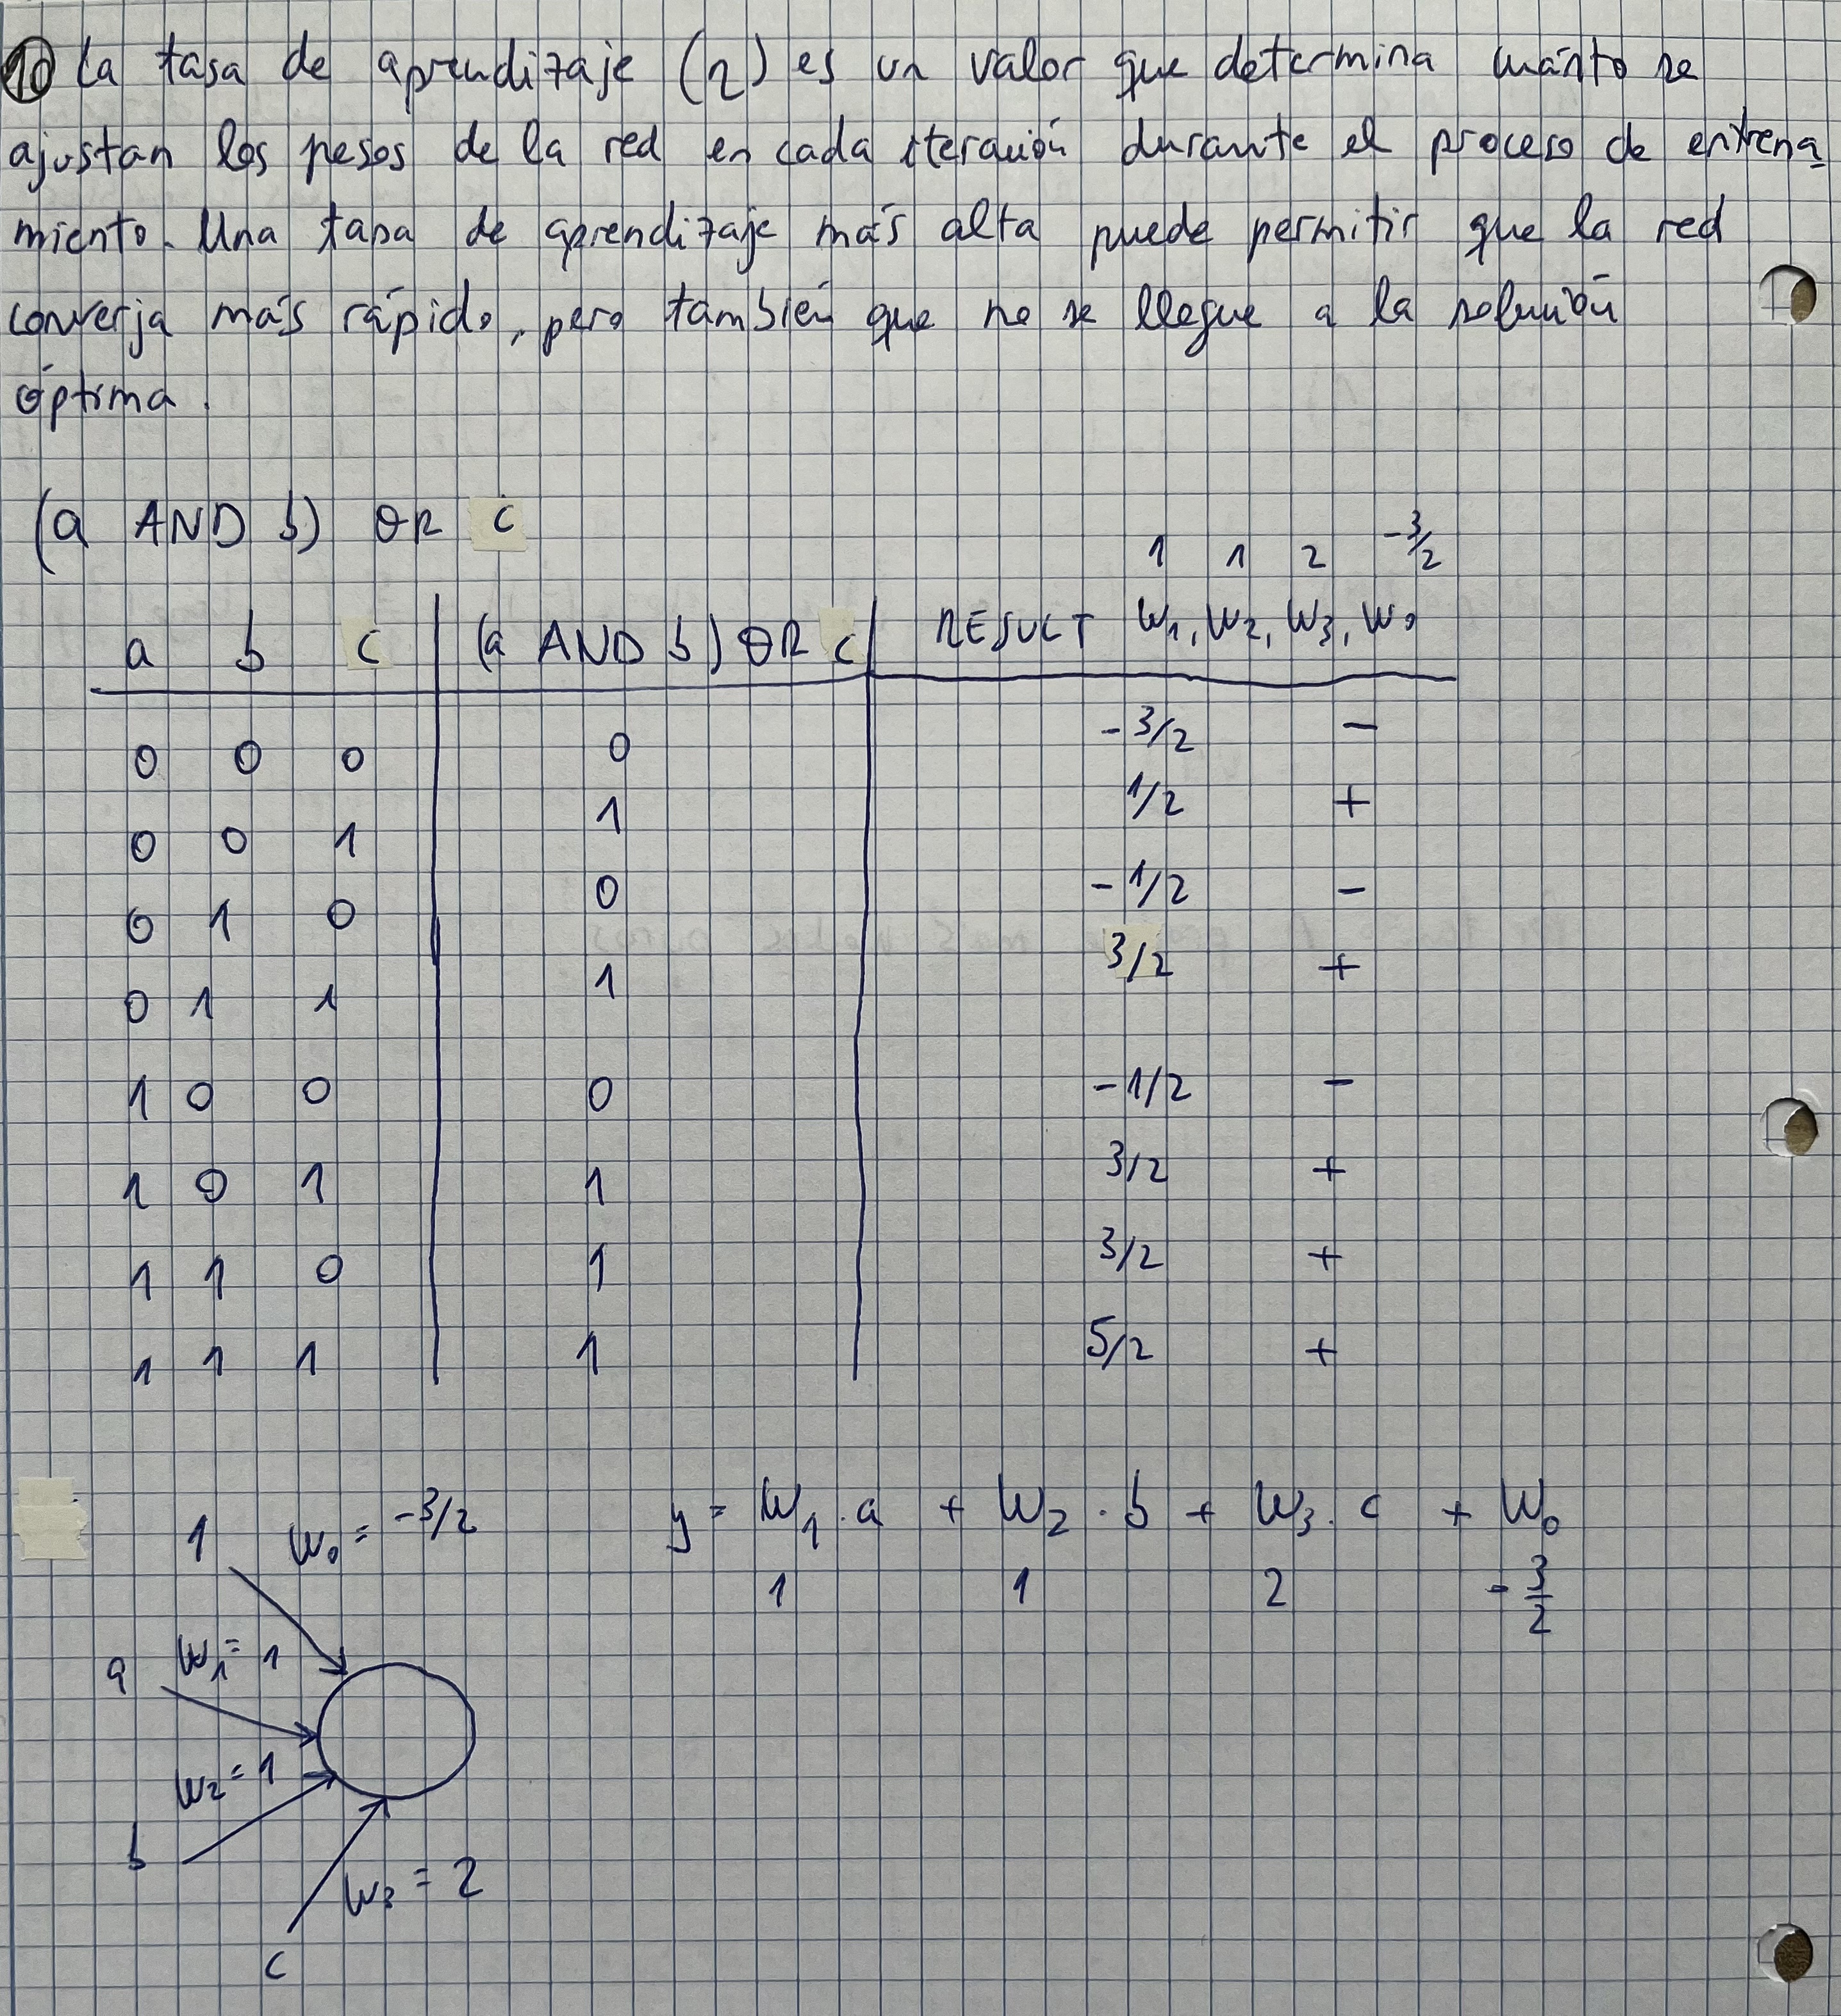 10 La tasa de aprendizaje (η) es un valor que determina cuánto se
ajustan los pesos de la red en cada iteración durante el proceso de entrena-
miento. Una tasa de aprendizaje más alta puede permitir que la red
converja más rápido, pero también que no se llegue a la solución
óptima.
(a AND b) OR c
1 1 2 -3/2
a b c (a AND b) OR c RESULT W1, W2, W3, W0
0 0 0 0 -3/2 -
0 0 1 1 1/2 +
0 1 0 0 -1/2 -
0 1 1 1 3/2 +
1 0 0 0 -1/2 -
1 0 1 1 3/2 +
1 1 0 1 3/2 +
1 1 1 1 5/2 +
1 W0 = -3/2 y = W1 . a + W2 . b + W3 . c + W0
1 1 2 - 3/2
a W1 = 1
W2 = 1
b
W3 = 2
c